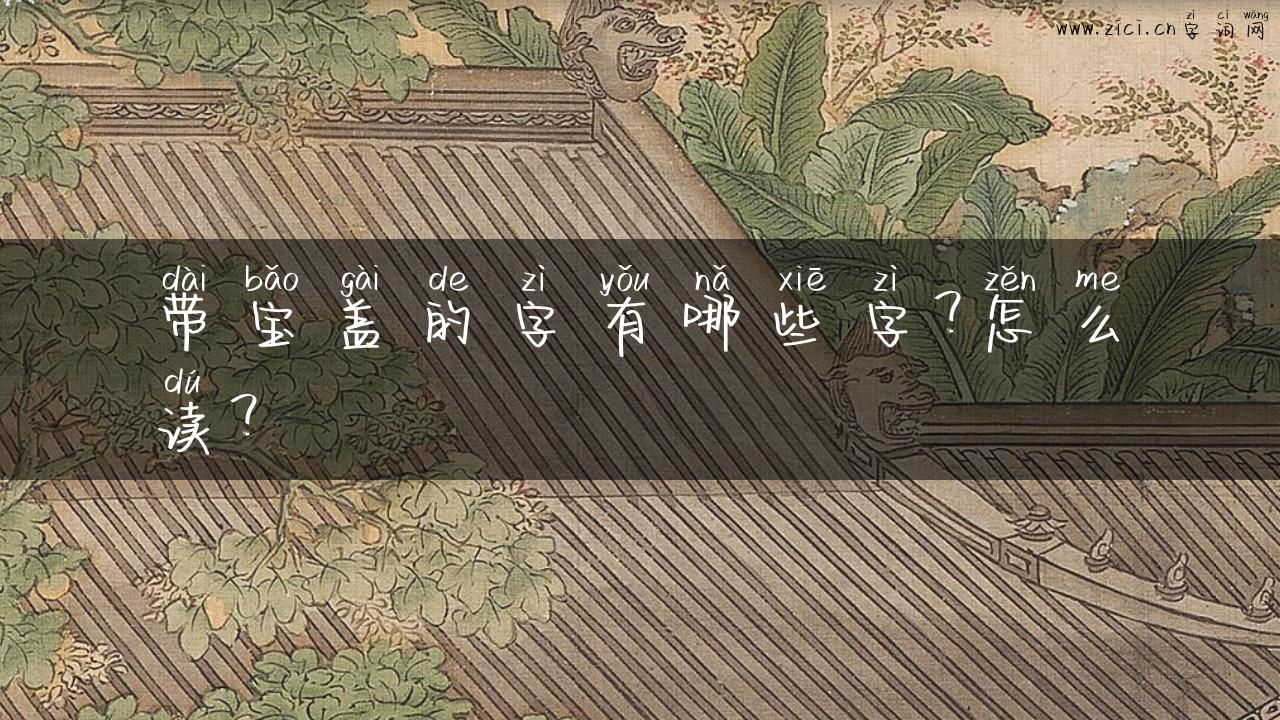 zì cí wǎng
www.zici.cn 字 词 网
dài bǎo gài de zì yǒu nǎ xiē zì zěn me
带 宝 盖 的 字 有 哪 些 字？怎 么
dú
读？